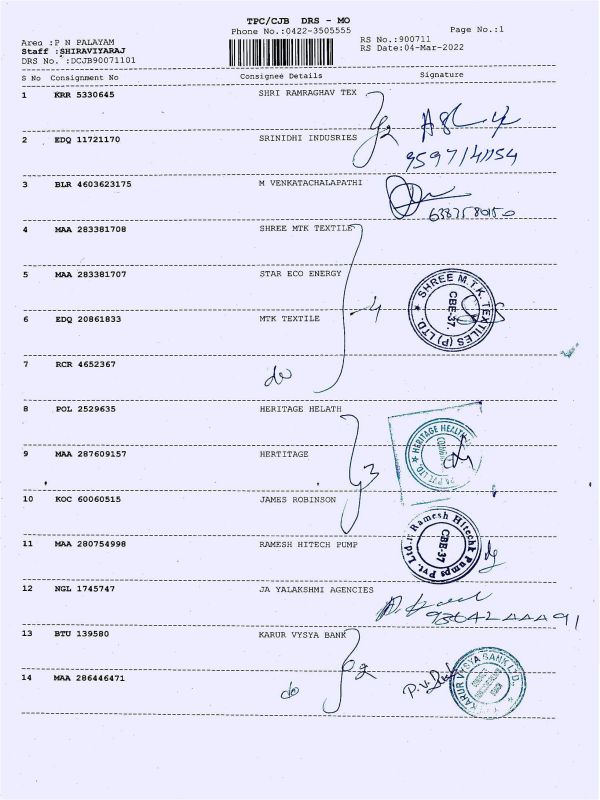 TPC/CJB DRS - MO
Phone No.:0422-3505555
Page No.:1
Area :P N PALAYAM
RS No.:900711
Staff :SHIRAVIYARAJ
RS Date:04-Mar-2022
DRS No. :DCJB90071101
S No Consignment No Consignee Details Signature
1 KRR 5330645 SHRI RAMRAGHAV TEX
2 EDQ 11721170 SRINIDHI INDUSRIES
3 BLR 4603623175 M VENKATACHALAPATHI
4 MAA 283381708 SHREE MTK TEXTILE
5 MAA 283381707 STAR ECO ENERGY
SHREE M.T.K. TEXTILES (P) LTD.
CBE-37.
6 EDQ 20861833 MTK TEXTILE
7 RCR 4652367
do
8 POL 2529635 HERITAGE HELATH
HERITAGE HEALTH
9 MAA 287609157 HERTITAGE
10 KOC 60060515 JAMES ROBINSON
Ramesh Hitech Pumps Pvt. Ltd.
CBE-37
11 MAA 280754998 RAMESH HITECH PUMP
12 NGL 1745747 JA YALAKSHMI AGENCIES
13 BTU 139580 KARUR VYSYA BANK
2
KARUR VYSYA BANK LTD.
14 MAA 286446471
do